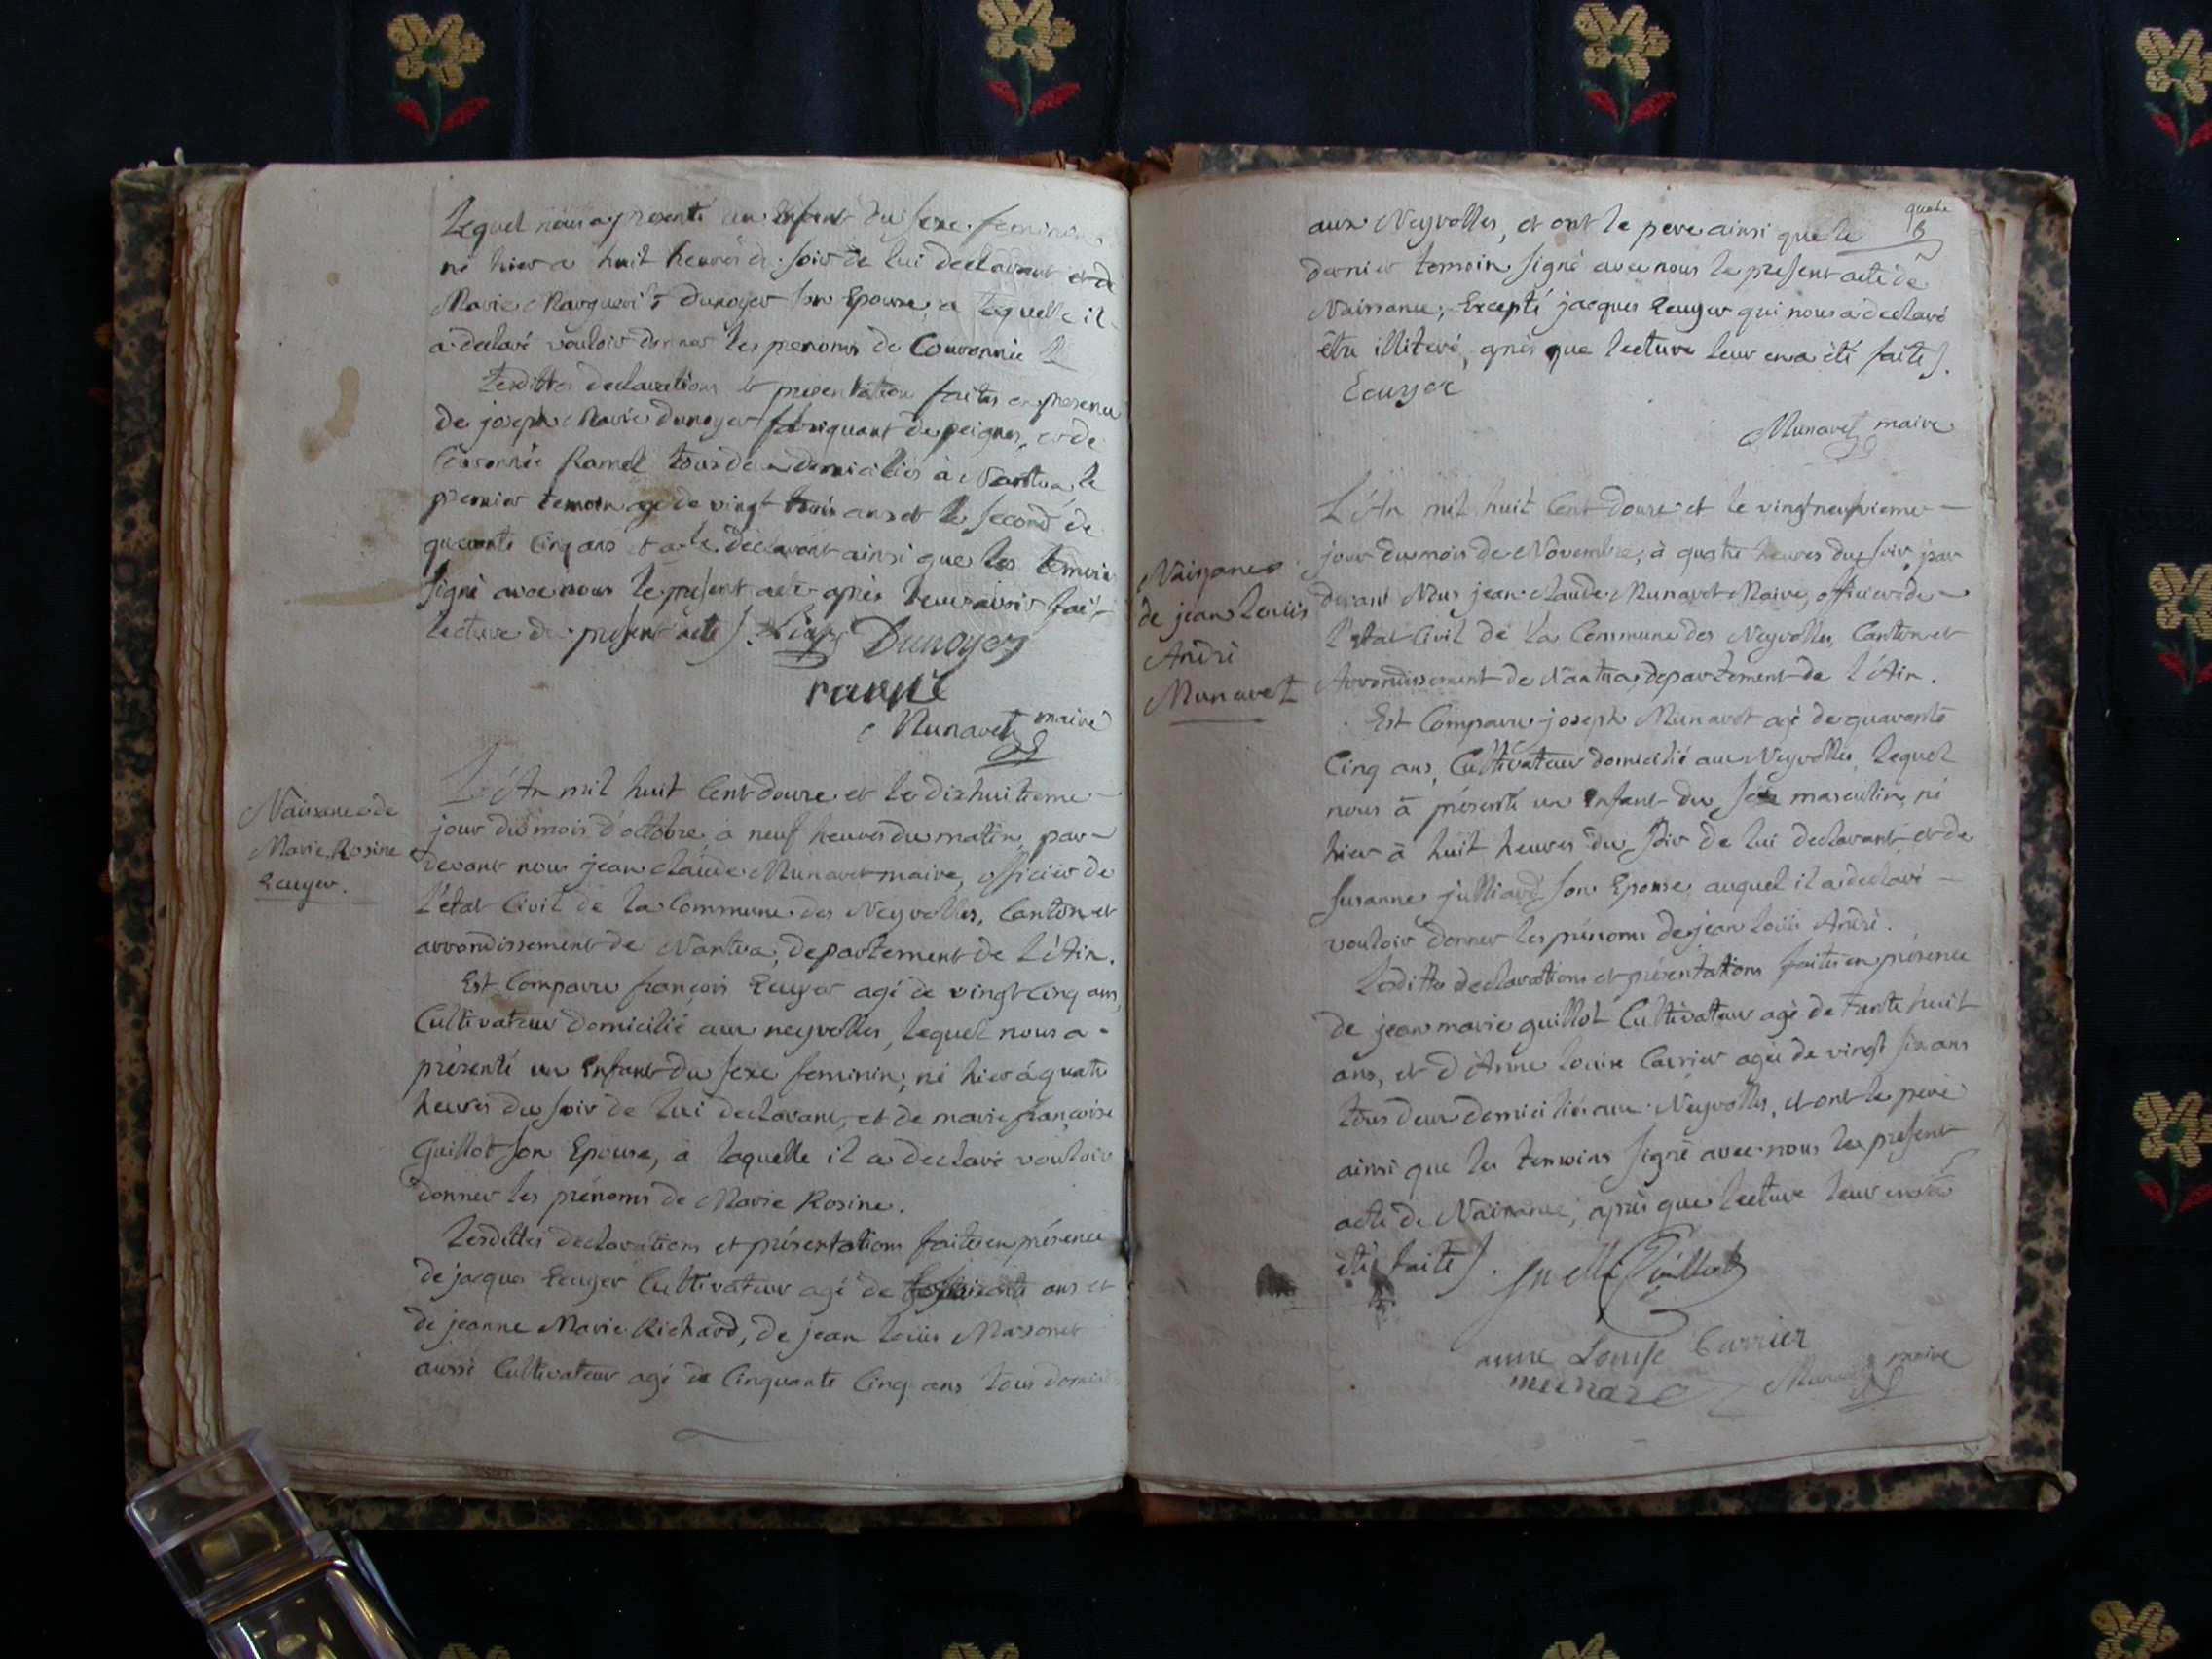 Lequel nous a presenté un enfant du sexe feminin
né hier a huit heures du soir de lui declarant et de
Marie Marguerite Dunoyer son Epouse, a lequelle il
a declaré vouloir donner les prenoms de Couronnie
Lesdittes declarations & presentation faites en presence
de joseph Marie Dunoyer fabriquant de peignes, et de
Couronnée Ramel tous deux domiciliés à Nantua, le
premier temoin agé de vingt trois ans et le second de
quarante Cinq ans et a le declarant ainsi que les temoin
signé avec nous le present acte après leur avoir fait
lecture du present acte). Dunoyer
ramel
Munavet maire
Naissance de
Marie Rosine
Ecuyer.
L'An mil huit Cent douze et le dixhuitieme
jour du mois d'octobre, a neuf heures du matin, par
devant nous jean claude Munavet maire, officier de
l'état Civil de la Commune des Neyrolles, Canton et
arrondissement de Nantua, departement de L'Ain.
Est Comparu françois Ecuyer agé de vingt Cinq ans,
Cultivateur domicilié aux neyrolles, lequel nous a
présenté un Enfant du sexe feminin, né hier á quatre
heures du soir de lui declarant, et de marie françoise
Guillot son Epouse, à laquelle il a declaré vouloir
donner les prénoms de Marie Rosine.
Lesdittes declarations et présentations faites en présence
de jacques Ecuyer Cultivateur agé de ans et
de jeanne Marie Richard, de jean louis Massonet
aussi Cultivateur agé de Cinquante Cinq ans tous domici
quatre
aux Neyrolles, et ont le pere ainsi que le
dernier temoin signé avec nous le present acte de
Naissance, Excepté jacques Ecuyer qui nous a declaré
être illiteré, après que lecture leur en a été faite).
Ecuyer
Munavet maire
Naissance
de jean Louis
André
Munavet
L'An mil huit Cent douze et le vingt neufvieme
jour du mois de Novembre, à quatre heures du soir, par
devant Nous jean claude Munavet Maire, officier de
l'etat Civil de la Commune des Neyrolles, Canton et
Arrondissement de Nantua, departement de L'Ain.
Est Comparu joseph Munavet agé de quarante
Cinq ans, Cultivateur domicilié aux Neyrolles, lequel
nous à présenté un Enfant du sexe masculin, né
hier à huit heures du soir de lui declarant, et de
Susanne julliard son Epouse, auquel il a declaré
vouloir donner les prénoms de jean louis André.
Lesdittes declarations et présentations faites en présence
de jean marie guillot Cultivateur agé de trente huit
ans, et d'Anne louise Carrier agée de vingt six ans
tous deux domiciliés aux Neyrolles, et ont le pere
ainsi que les temoins signé avec nous le present
acte de Naissance, après que lecture leur en a
été faite). Guillot
anne Louise Carrier
Munavet maire